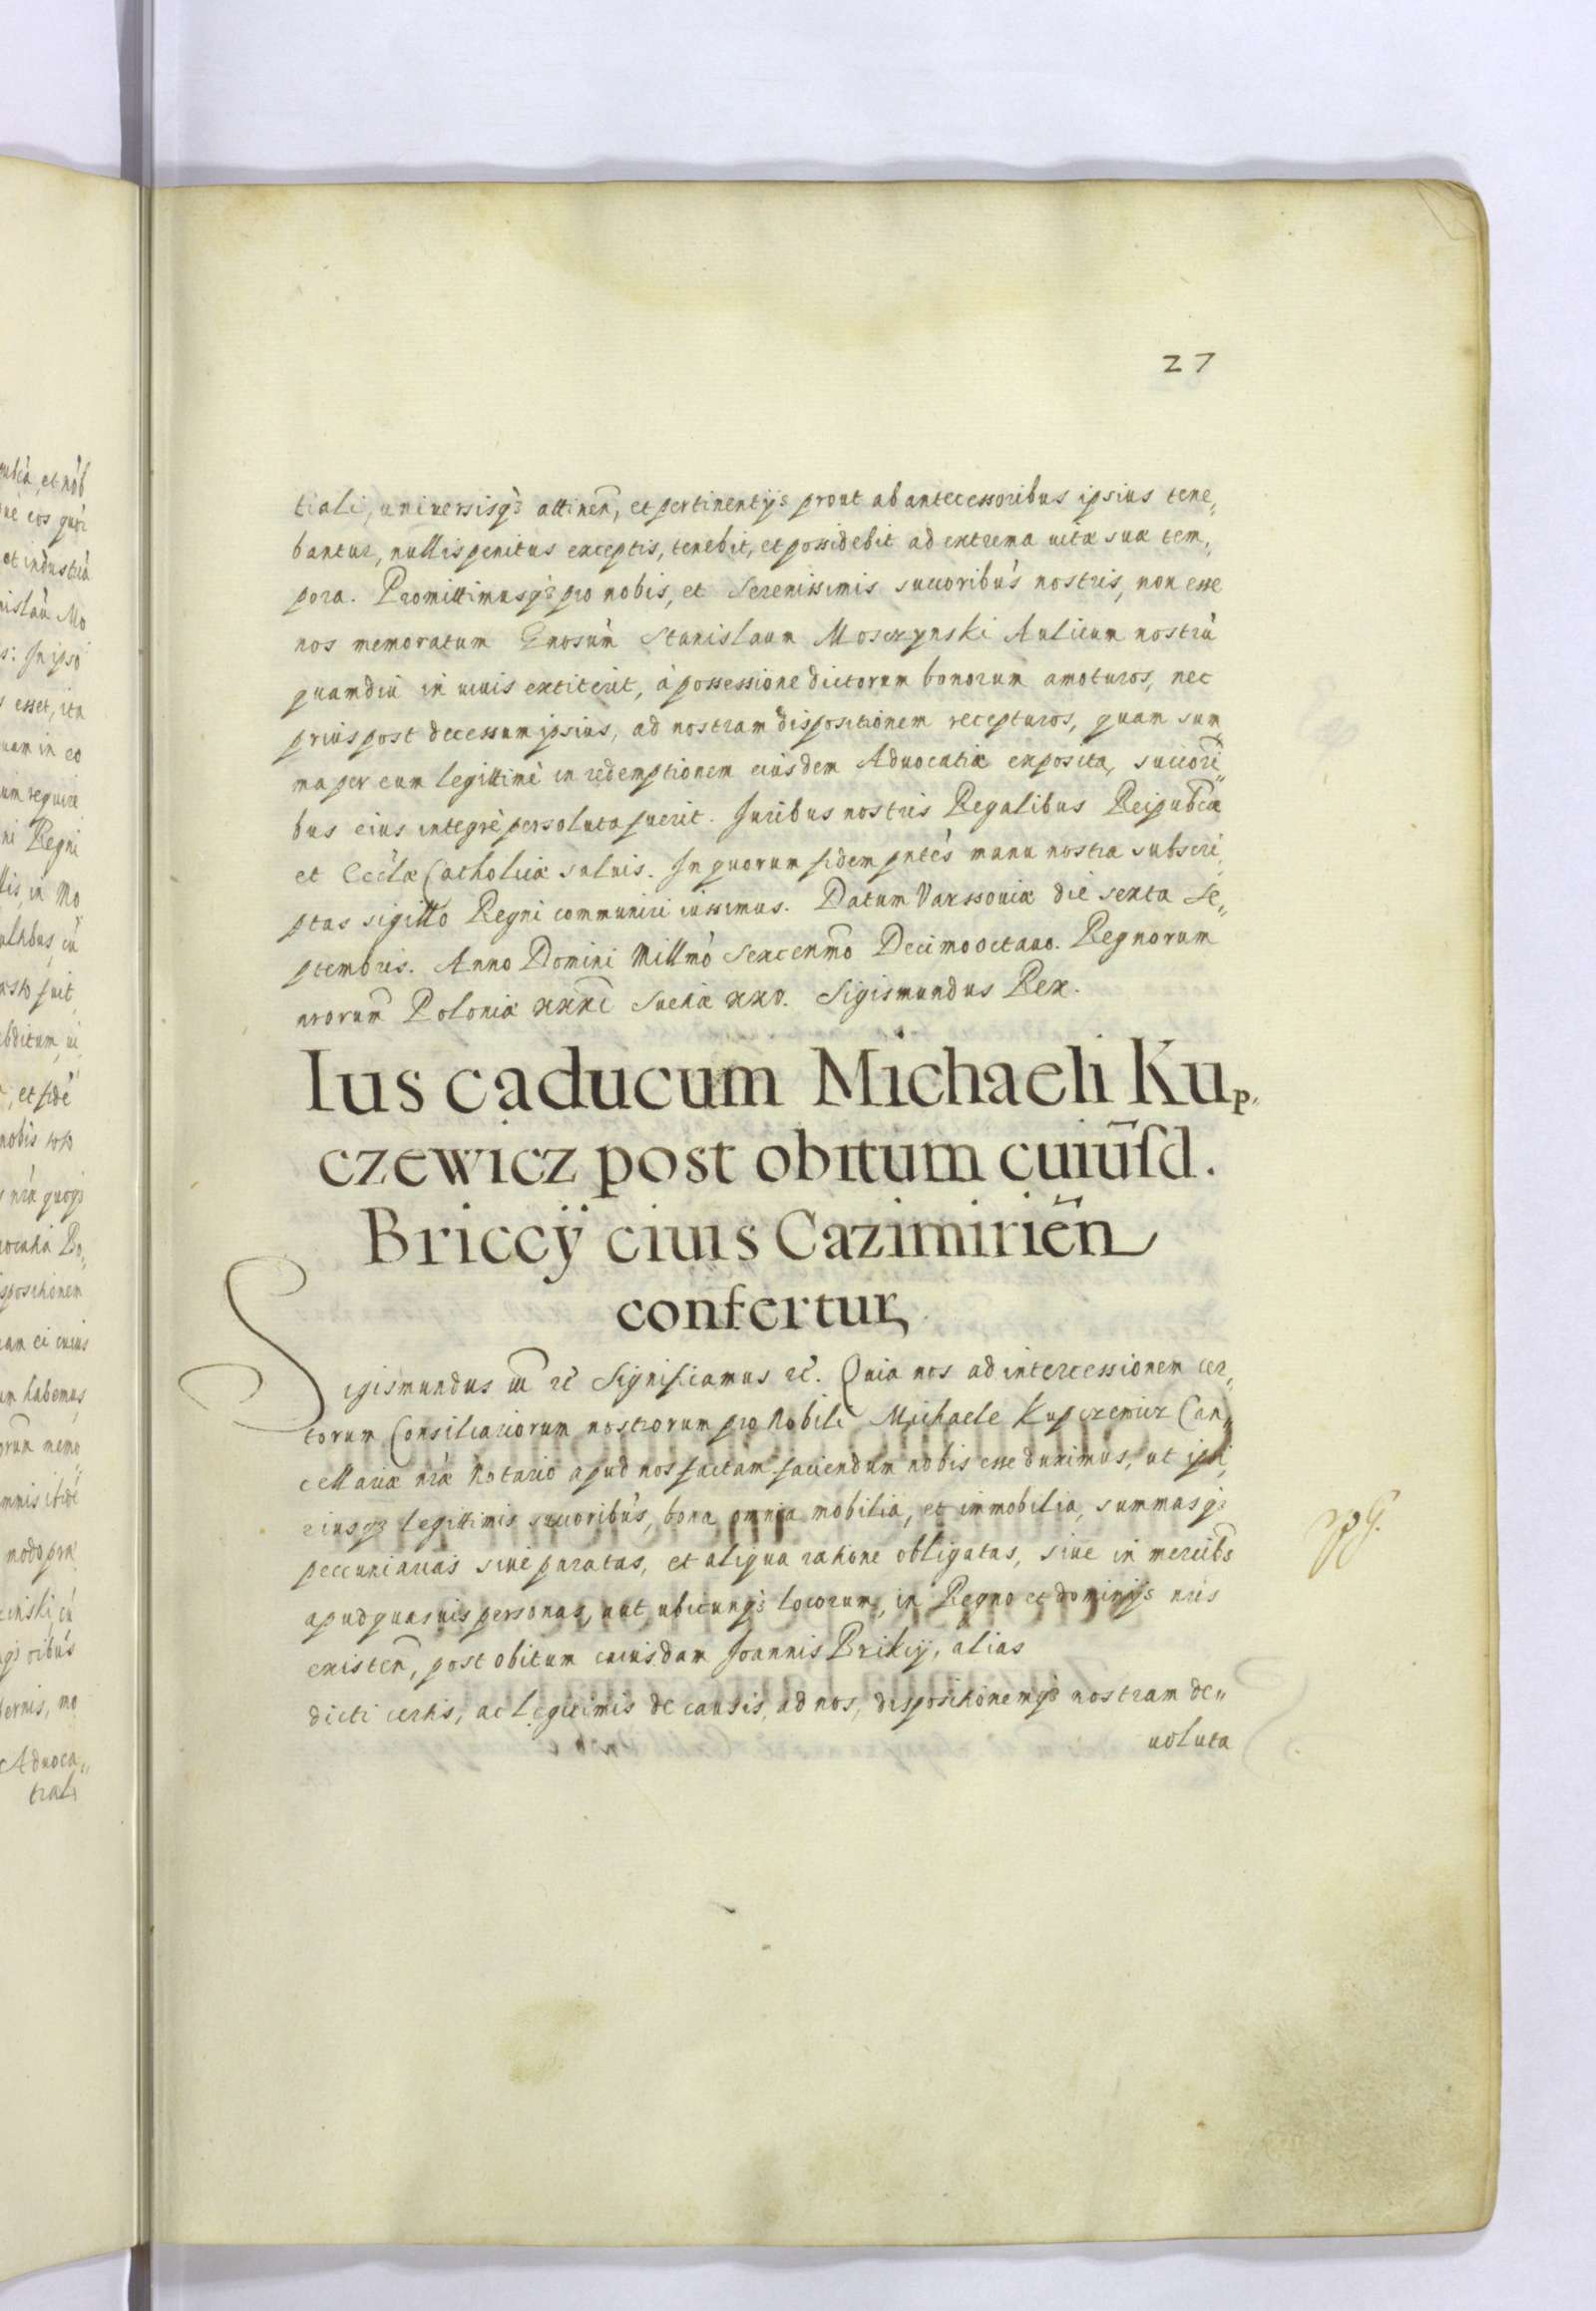 27
tiali, uniuersisq3 attinen, et pertinentijs prout ab antecessoribus ipsius tene„
bantur, nullis penitus exceptis, tenebit, et possidebit ad extrema uitæ suæ tem„
pora. Promittimusq3 pro nobis, et Serenissimis succoribùs nostris, non esse
nos memoratum Gnosùm Stanislaum Moszzynski Aulicum nostrù
quamdiù in uiuis extiterit, à possessione dictorum bonorum amoturos, nec
prius post decessum ipsius, ad nostram dispositionem recepturos, quam sum
ma per eum legittimè in redemptionem eiusdem Aduocatiæ exposita, succori„
bus eius integrè persoluta fuerit. Juribus nostris Regalibus Reipubcæ
et Ecclæ Catholicæ saluis. In quorum fidem pntès manu nostra subscri„
ptas sigillo Regni communiri iussimus. Datum Varssouiæ die sexta Se„
ptembris. Anno Domini Millmò Sexcenmo Decimooctauo. Regnorum
nrorum Poloniæ xxxi Sueciæ xxv. Sigismundus Rex.
Ius caducum Michaeli Kup„
czewicz post obitum cuiusd.
Briccÿ ciuis Cazimirien
confertur
Sigismundus iii rc Significamus rc. Quia nos ad intercessionem cer„
torum Consiliariorum nostrorum pro Nobile Michaele Kupczewicz Can„
cellariæ nræ Notario apud nos factam faciendum nobis esse duximus, ut ipsi,
eiusq3 legittimis succoribùs, bona omnia mobilia, et immobilia, summasq3
peccuniarias siue paratas, et aliqua ratione obligatas, siue in mercibs
apud quasuis personas, aut ubicunq3 locorum, in Regno et dominijs nris
existen, post obitum cuiusdam Joannis Brikij, alias
dicti certis, ac Legitimis de causis, ad nos, dispositionemq3 nostram de„
uoluta